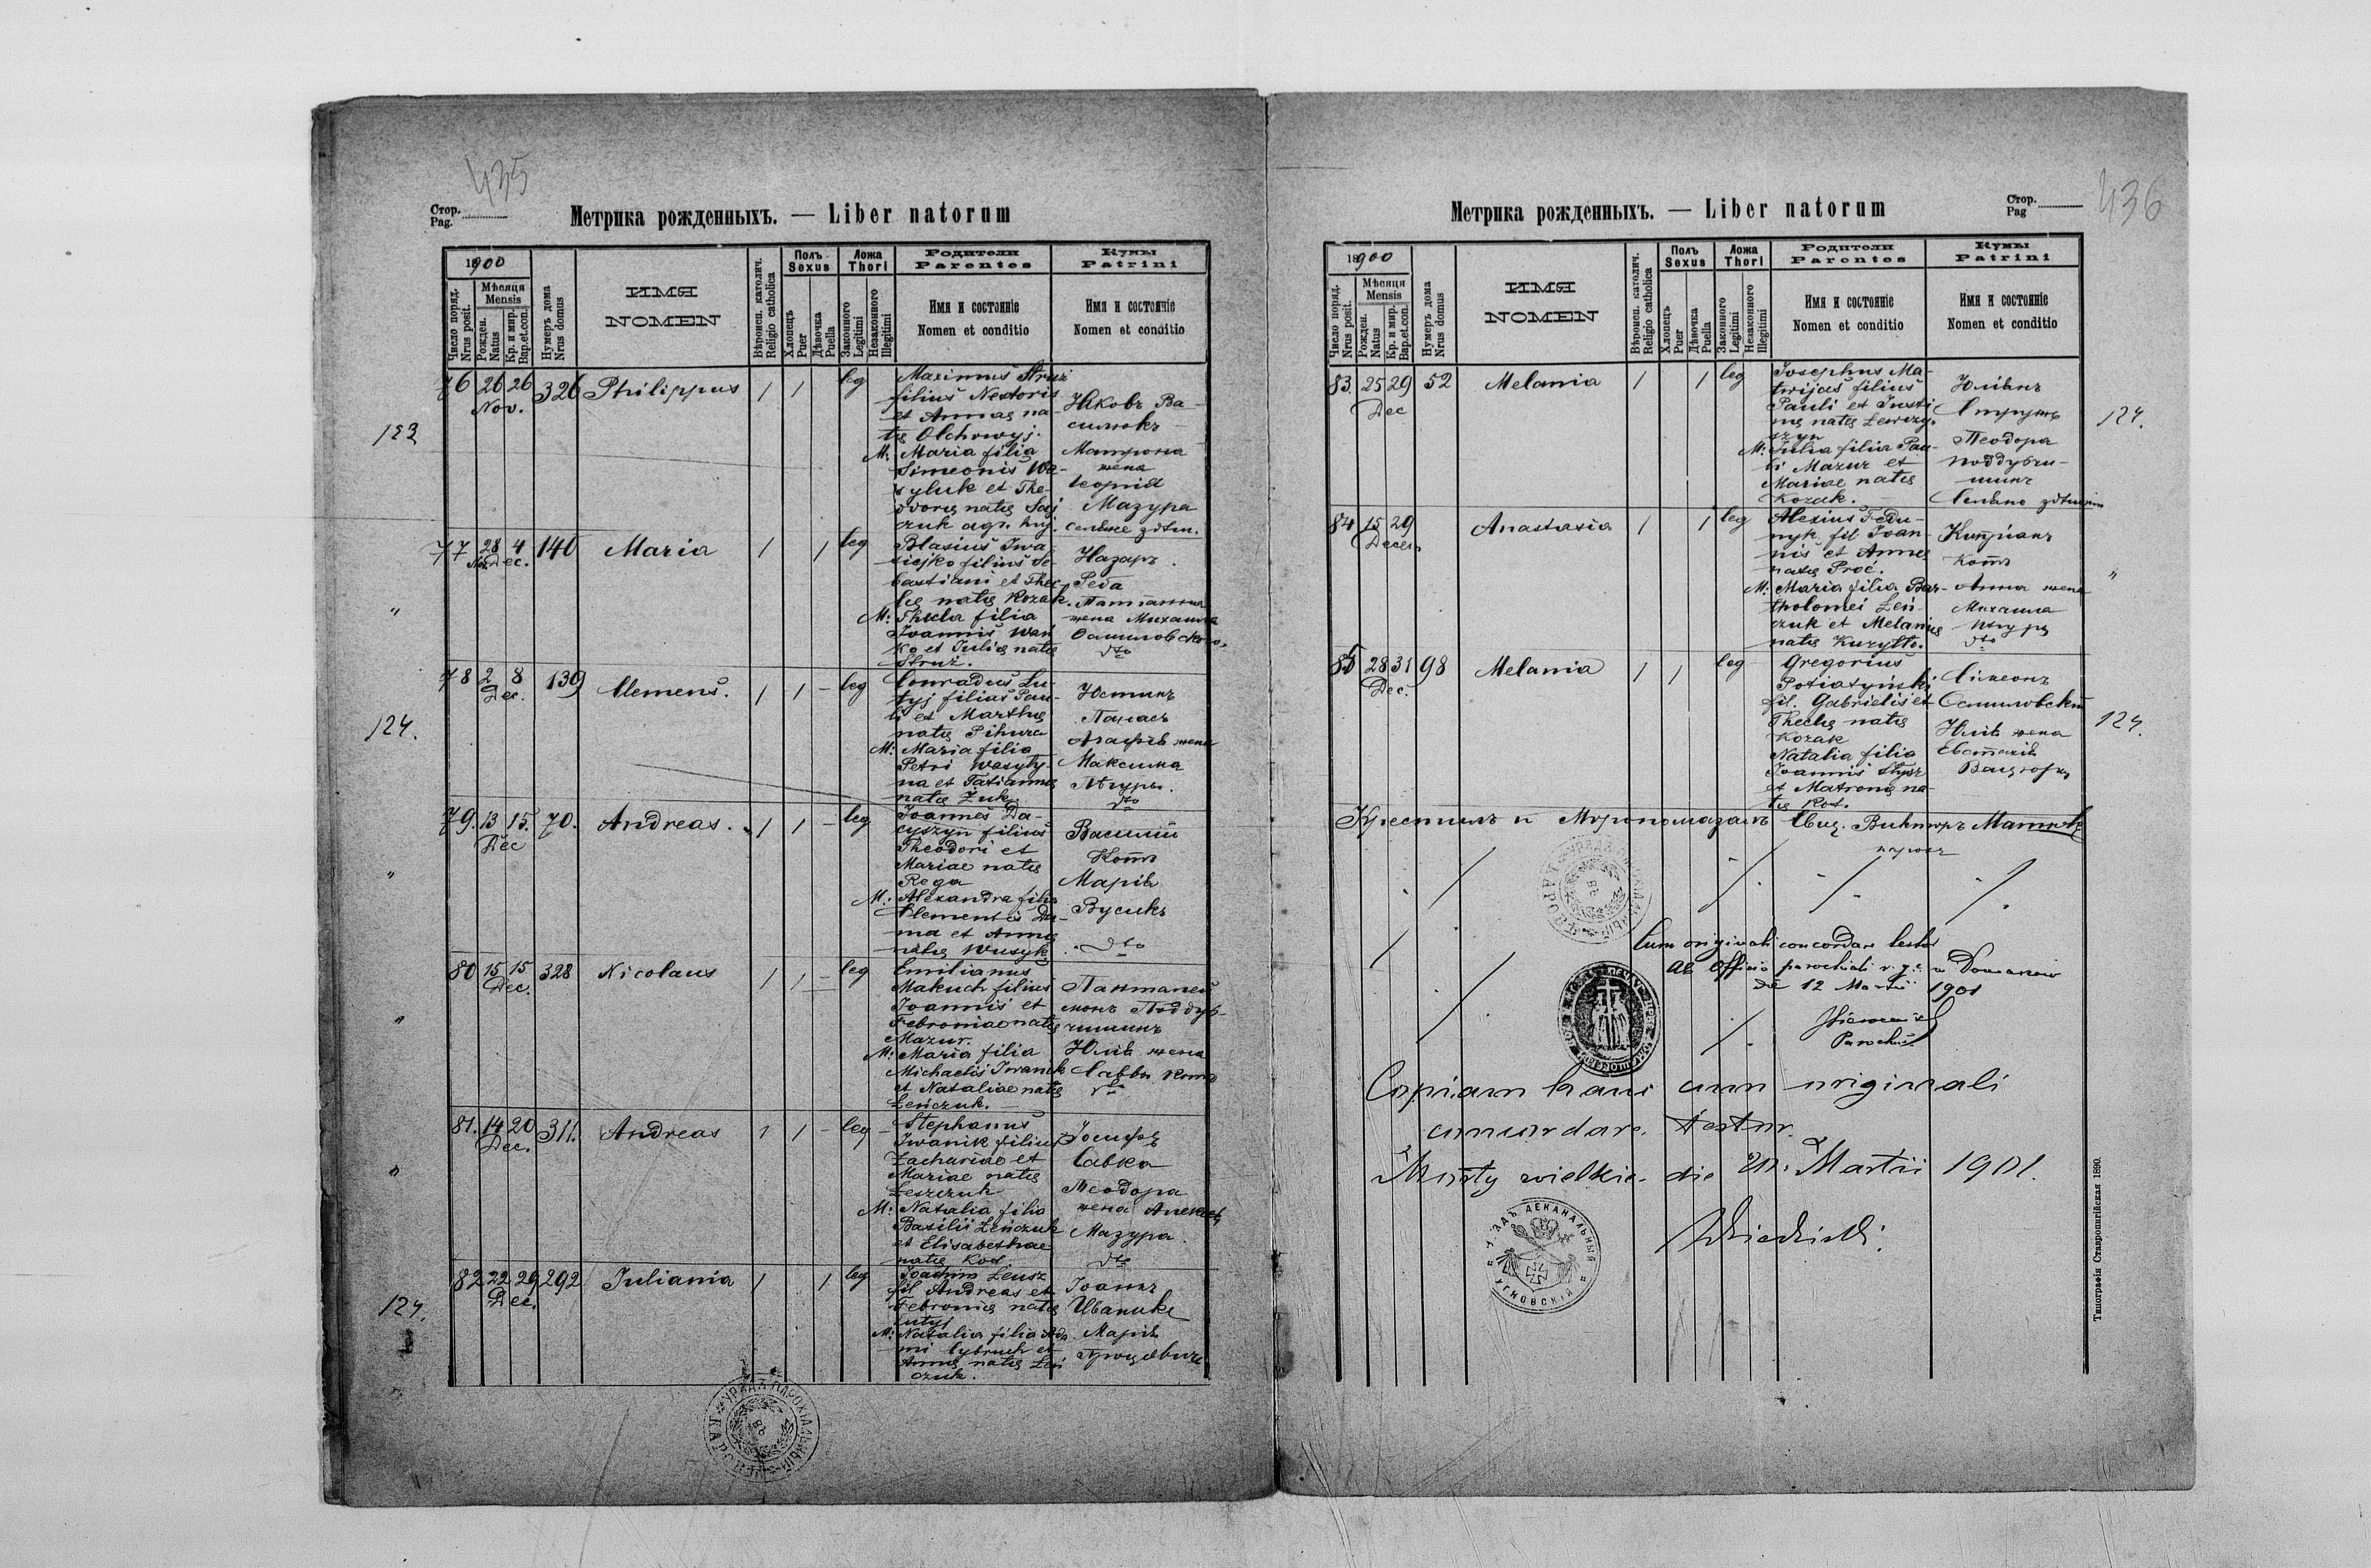 435
Стор.
Pag.
Метрика рожденныхъ. — Liber natorum
1900
Число поряд.
Nrus posit.
Мѣсяця
Mensis
Рожден.
Natus
Кр. и мир.
Bap. et. con.
Нумеръ дома
Nrus domus
ИМЯ
NOMEN
Вѣроисп. католич.
Religio catholica
Полъ
Sexus
Хлопецъ
Puer
Дѣвочка
Puella
Ложа
Thori
Законного
Legitimi
Незаконного
Illegitimi
Родители
Parentes
Имя и состояніе
Nomen et conditio
Кумы
Patrini
Имя и состояніе
Nomen et conditio
123
76 26 26 326 Philippus 1 1 leg
Nov.
Maximus Struź
filius Nestoris
et Annae na-
tę Olchowyj.
M: Maria filia
Simeonis Wa-
syluk et The-
odorę natę Saj
czuk agr. huj.
Яковъ Ва-
силюкъ
Матрона
жена
Георгія
Мазура
77 28 4 140 Maria 1 1 leg
Nov Dec.
"
Blasius Iwa
siejko filius Se-
bastiani et Thec-
lę natę Kozak.
M: Thecla filia
Joannis Wań
ko et Julię natę
Struź.
Назаръ
Реба
жена Михаила
Осмиловского,
dto
78 2 8 139 Clemens. 1 1 - leg
Dec.
124.
Conradus Lu-
tyj filius Pau-
li et Marthę
natę Pihura
M: Maria filia
Petri Wasyly-
na et Tatiannę
natę Żuk.
Юстинъ
Панасъ
Агафія жена
Максима
dto
79. 13 15. 70. Andreas. 1 1 - leg
Dec
"
Joannes Da-
cyszyn filius
Theodori et
Mariae natę
Rega
M: Alexandra filia
Clementis Du-
ma et Annę
natę Wusyk
Василій
Котъ
Марія
Вусикъ
dto
80 15 15 328 Nicolaus 1 1 - leg
Dec.
"
Emilianus
Makuch filius
Joannis et
Febroniae natę
Mazur.
M: Maria filia
Michaelis Iwanik
et Nataliae natę
Leńczuk.
Пантелей
монъ Поддуб-
чишинъ
Юлія жена
Саввы Кота
dto
81. 14 20 311. Andreas 1 1 - leg
Dec.
"
Stephanus
Iwanik filius
Zachariae et
Mariae natę
Leszczuk
M: Natalia filia
Basilii Leńczuk
et Elisabethae
natę Kot.
Іосифъ
Савка
Теодора
жена Алексѣя
Мазура.
dto
82 22 29 292 Juliania 1 1 leg
Dec.
124.
Joachim Leusz
fil Andreas et
Febronię natę
Lutyj
M: Natalia filia Ada-
mi Cybruch et
Annę natę Leń
czuk.
Іоаннъ
Иваникъ
Марія
436
Стор.
Pag
Метрика рожденныхъ. — Liber natorum
1900
Число поряд.
Nrus posit.
Мѣсяця
Mensis
Рожден.
Natus
Кр. и мир.
Bap. et. con.
Нумеръ дома
Nrus domus
ИМЯ
NOMEN
Вѣроисп. католич.
Religio catholica
Полъ
Sexus
Хлопецъ
Puer
Дѣвочка
Puella
Ложа
Thori
Законного
Legitimi
Незаконного
Illegitimi
Родители
Parentes
Имя и состояніе
Nomen et conditio
Кумы
Patrini
Имя и состояніе
Nomen et conditio
83. 25 29 52 Melania 1 1 leg
Dec
Josephus Ma-
twijas filius
Pauli et Justi
nę natę Lewczy-
szyn
M: Julia filia Pau-
li Mazur et
Mariae natę
Kozak.
Юліанъ
Теодора
Поддубчи-
шинъ
124.
84 15 29 Anastasia 1 1 leg
Decem.
Alexius Fedu-
nyk fil Joan-
nis et Annę
natę Proć.
M: Maria filia Bar-
tholomei Leń-
czuk et Melanię
natę Kuryłło.
Кипріанъ
Котъ
Анна жена
Михаила
dto
"
85 28 31 98 Melania 1 1 leg
Dec.
Gregorius
Potiatyński
fil. Gabrielis et
Theclę natę
Kozak
Natalia filia
Joannis Stysz
et Matronę na-
tę Kot.
Симеонъ
Осмиловскій
Юлія жена
Евстахія
124.
Крестилъ и Мѵропомазалъ Свящ. Викторъ
парохъ
Cum originali concordare testor
Ab Officio parochiali r. g. c. in
die 12 Martii 1901
Parochus
Copiam hanc cum originali
concordare testor.
Mosty wielkie die 20. Martii 1901.
УРЯДЪ ДЕКАНАЛЬНЫЙ
УГНОВСКІЙ
Типографія Ставропигійская 1890.
УРЯДЪ ПАРОХІАЛЬНЫЙ